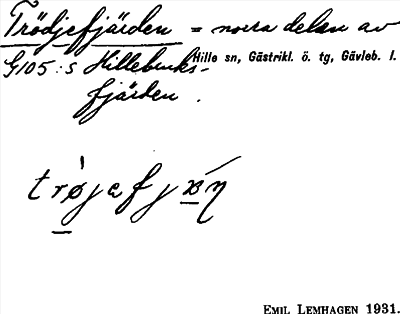 Trödjefjärden = norra delen av
G105:s Hillebruks-
Hille sn, Gästrikl. ö. tg, Gävleb. l.
fjärden.
EMIL LEMHAGEN 1931.